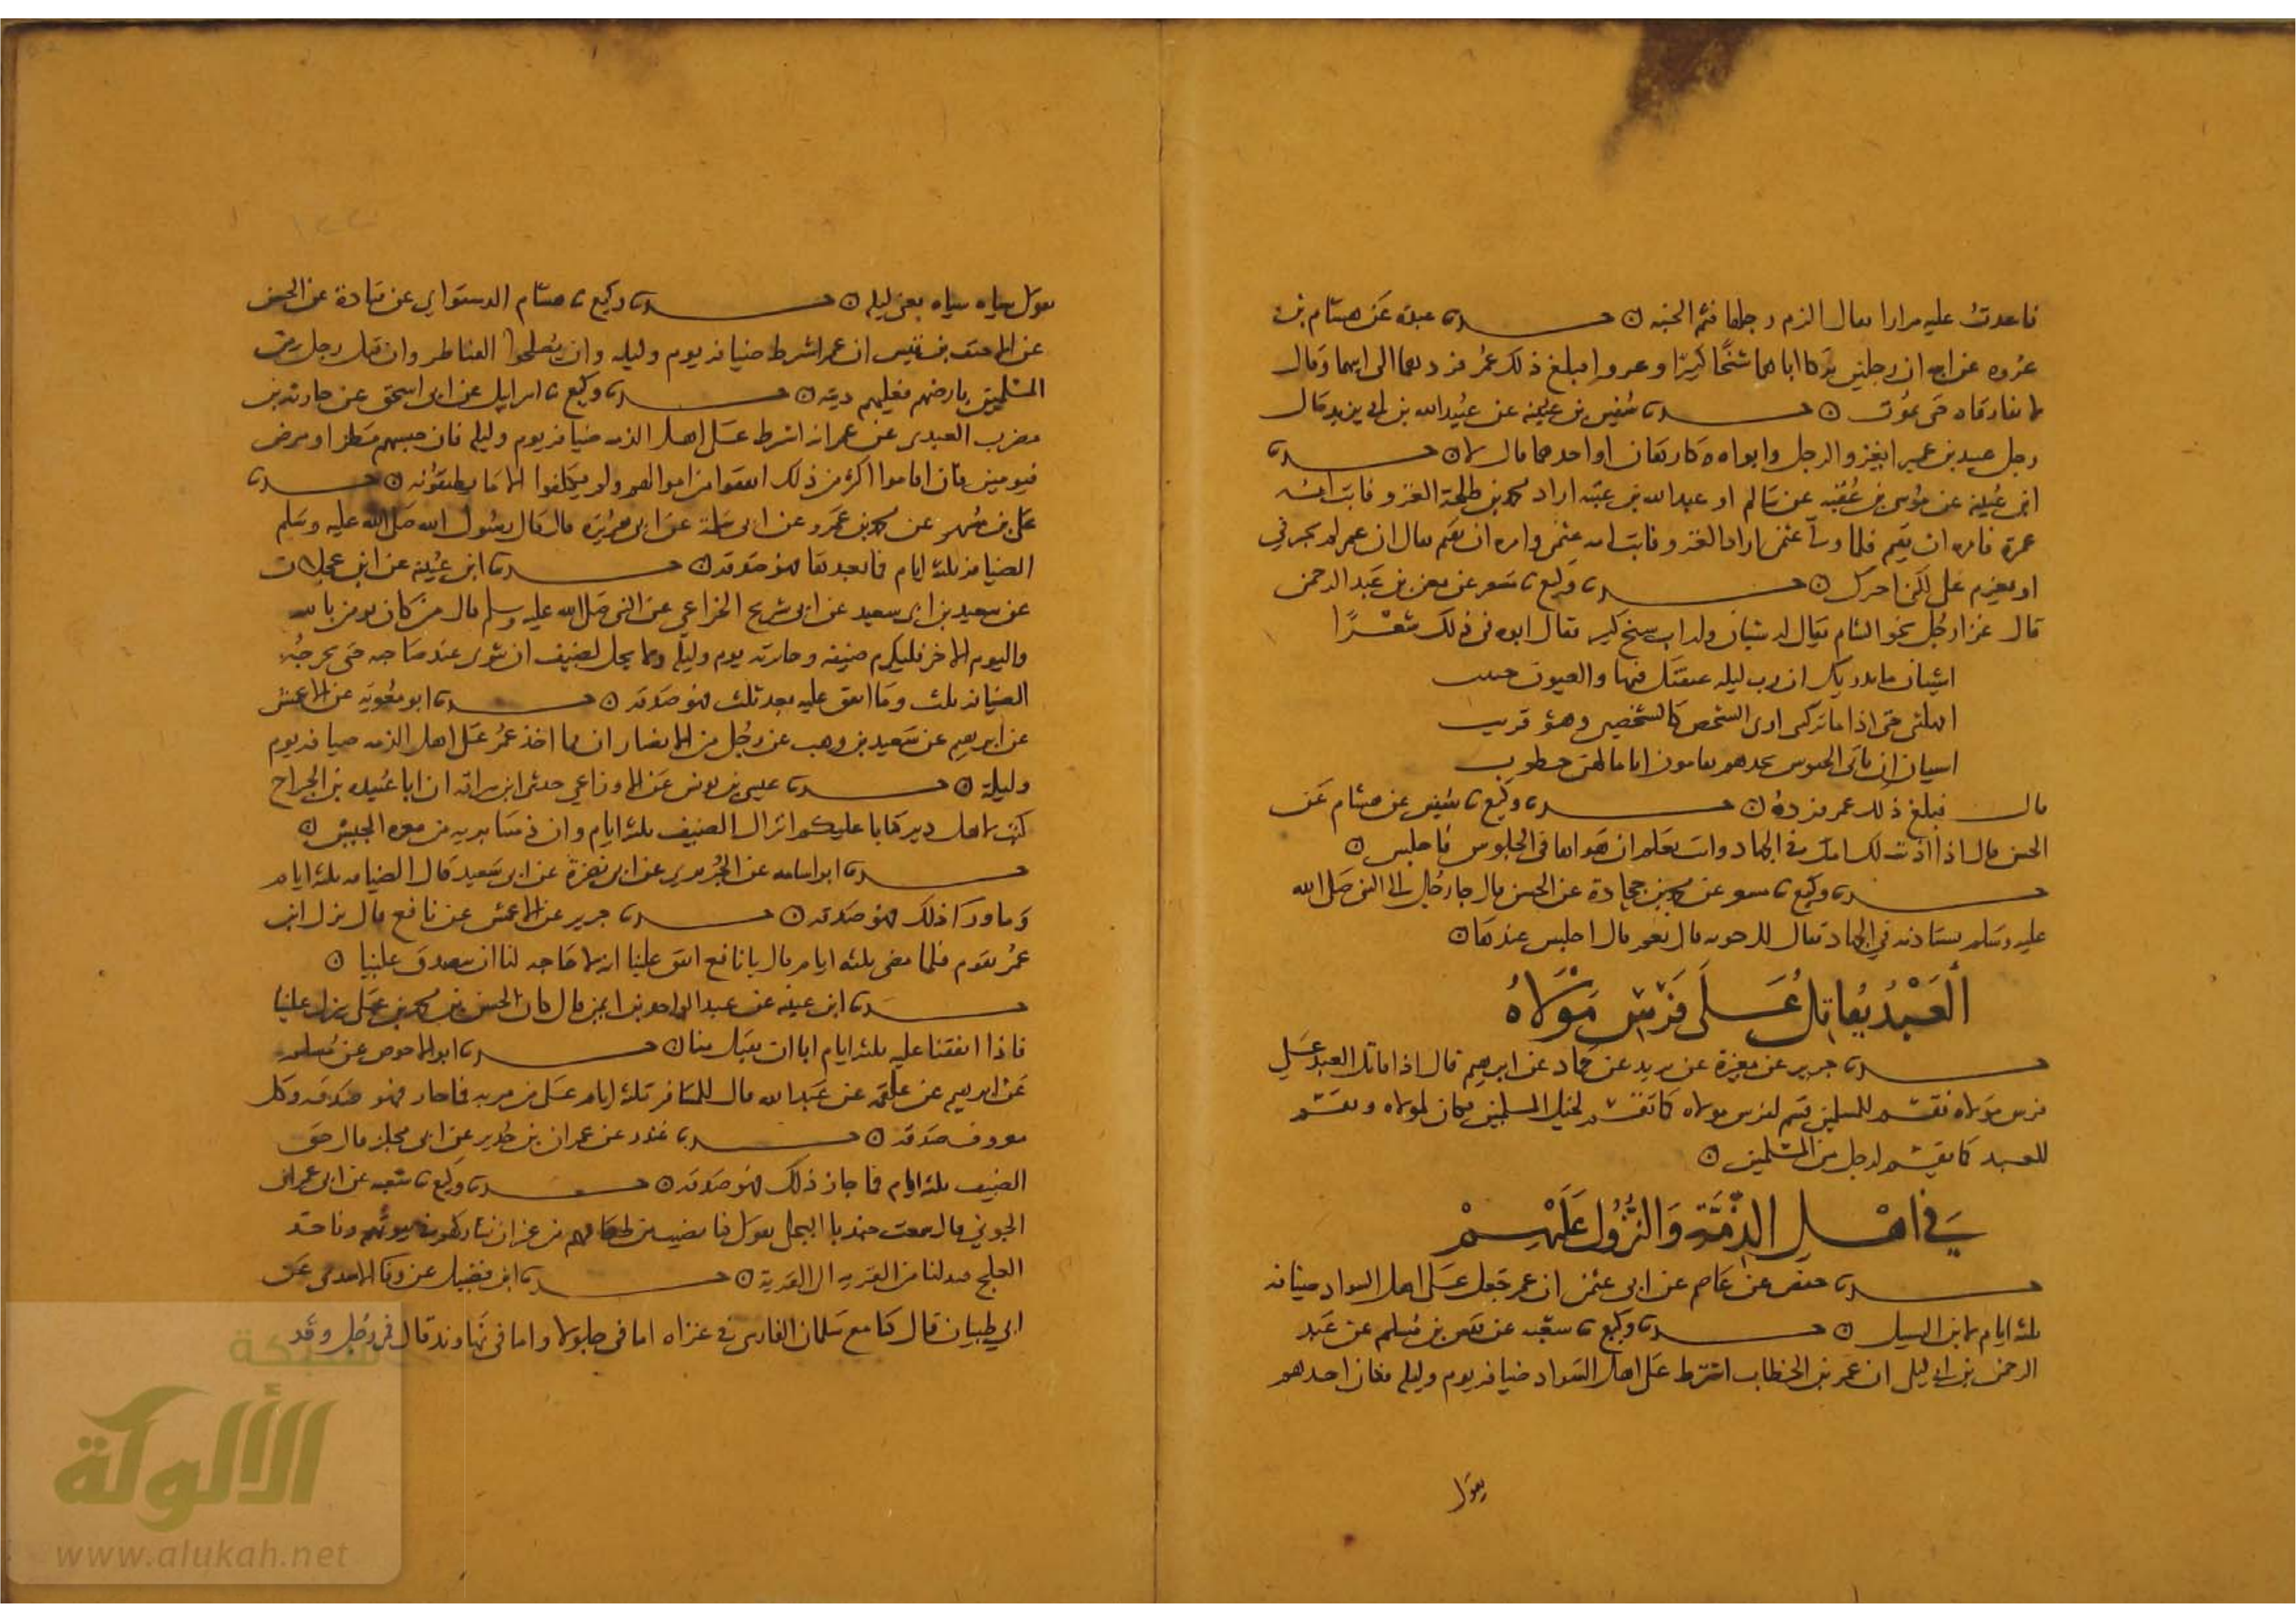 فاعدت عليه مرارا فقال الزم رجلها فثم الجنه ں حدثنا عبدة عن هشام بن
عروه عن ابيه ان رجلين تركا اباهما شيخا كبيرا وغزوا فبلغ ذلك عمر فردهما الى ابيهما وقال
لا تفارقاه حتى يموت ں حدثنا سفين بن عيينة عن عبيد الله بن ابي يزيد قال
رجل عبيد بن عمير ايغزو الرجل وابواه كارهان او احدهما قال لا ں حدثنا
ابن عيينة عن موسى بن عقبه عن سالم او عبد الله بن عتبه اراد محمد بن طلحة الغزو فاتت امه
عمر فامره ان يقيم فلما ولي عثمن اراد الغزو فاتت امه عثمن وامره ان يقيم فقال ان عمر لم يجبرني
او يعزم على لكن اجبرك ں حدثنا وكيع ثنا مسعر عن معن بن عبد الرحمن
قال غزا رجل نحو الشام يقال له شيبان وله اب شيخ كبير فقال ابوه في ذلك شعرا
اشيبان ما يدريك ان رب ليله غبقتك فيها والغبوق حبيب
امهلتني حتى اذا ما تركتني ارى الشخص كالشخصين وهو قريب
اشيبان ان تاتي الجيوش تجدهم يقاسون اياما لهن خطوب
قال فبلغ ذلك عمر فرده ں حدثنا وكيع ثنا سفين عن هشام عن
الحسن قال اذا اذنت لك امك في الجهاد وانت تعلم ان هواها في الجلوس فاجلس ں
حدثنا وكيع ثنا مسعر عن محمد بن جحادة عن الحسن قال جا رجل الى النبي صلى الله
عليه وسلم يستاذنه في الجهاد فقال الك حوبه قال نعم قال اجلس عندها ں
العبد يقاتل على فرس مولاه
حدثنا جرير عن مغيرة عن يزيد عن حماد عن ابرهيم قال اذا قاتل العبد على
فرس مولاه فقسم للمسلمين قسم لفرس مولاه كما تقسم لخيل المسلمين فكان لمولاه ويقسم
للعبد كما يقسم لرجل من المسلمين ں
في اهل الذمة والنزول عليهم
حدثنا حفص عن عاصم عن ابي عثمن ان عمر جعل على اهل السواد ضيافه
ثلثه ايام لابن السبيل ں حدثنا وكيع ثنا شعبه عن قيس بن مسلم عن عبد
الرحمن بن ابي ليلى ان عمر بن الخطاب اشترط على اهل السواد ضيافه يوم وليله فكان احدهم
يقول
يقول شباه شباه يعني ليله ں حدثنا وكيع ثنا هشام الدستواي عن قتادة عن الحسن
عن الاحنف بن قيس ان عمر اشترط ضيافه يوم وليله وان يصلحوا القناطر وان قتل رجل من
المسلمين بارضهم فعليهم ديته ں حدثنا وكيع ثنا اسرايل عن ابي اسحق عن حارثه بن
مضرب العبدي عن عمر انه اشترط على اهل الذمه ضيافه يوم وليله فان حبسهم مطر او مرض
فيومين فان اقاموا اكثر من ذلك انفقوا من اموالهم ولم يكلفوا الا ما يطيقونه ں حدثنا
على بن مسهر عن محمد بن عمرو عن ابي سلمة عن ابي هريرة قال قال رسول الله صلى الله عليه وسلم
الضيافة ثلثه ايام فما بعد فهو صدقه ں حدثنا ابن عيينه عن ابن عجلان
عن سعيد بن ابي سعيد عن ابي شريح الخزاعي عن النبي صلى الله عليه وسلم قال من كان يومن بالله
واليوم الاخر فليكرم ضيفه وجائزته يوم وليله ولا يحل لضيف ان يثوى عند صاحبه حتى يحرجه
الضيافه ثلث وما انفق عليه بعد ثلث فهو صدقه ں حدثنا ابو معويه عن الاعمش
عن ابرهيم عن سعيد بن وهب عن رجل من الانصار ان مما اخذ عمر على اهل الذمه ضيافه يوم
وليلة ں حدثنا عيسى بن يونس عن الاوزاعي حدثني ابن سراقه ان ابا عبيده بن الجراح
كتب لاهل دير كتابا عليكم انزال الضيف ثلثه ايام وان ذمتنا بريه من معره الجيش ں
حدثنا ابو اسامه عن الجريري عن ابي نضرة عن ابي سعيد قال الضيافه ثلثه ايام
وما ورا ذلك فهو صدقه ں حدثنا جرير عن الاعمش عن نافع قال نزل ابن
عمر بقوم فلما مضى ثلثه ايام قال يا نافع انفق علينا انه لا حاجه لنا ان يتصدق علينا ں
حدثنا ابن عيينه عن عبد الواحد بن ايمن قال كان الحسن بن محمد بن على ينزل علينا
فاذا انفقنا عليه ثلثه ايام ابا ان يقبل منا ں حدثنا ابو الاحوص عن مسلم
عن ابرهيم عن علقمه عن عبد الله قال للمسافر ثلثه ايام على من مر به فما جاز فهو صدقه وكل
معروف صدقه ں حدثنا غندر عن عمران بن حدير عن ابي مجلز قال حق
الضيف ثلثه ايام فما جاز ذلك فهو صدقه ں حدثنا وكيع ثنا شعبه عن ابي عمران
الجوني قال سمعت جندبا البجلي يقول كنا نصيب من طعامهم من غير ان نشاركهم في بيوتهم وناخذ
العلج فيدلنا من القريه الى القرية ں حدثنا ابن فضيل عن وقا الاسدي عن
ابي ظبيان قال كنا مع سلمان الفارسي في غزاه اما في جلولا واما في نهاوند قال فمر رجل وقد
شبكة
الألوكة
www.alukah.net